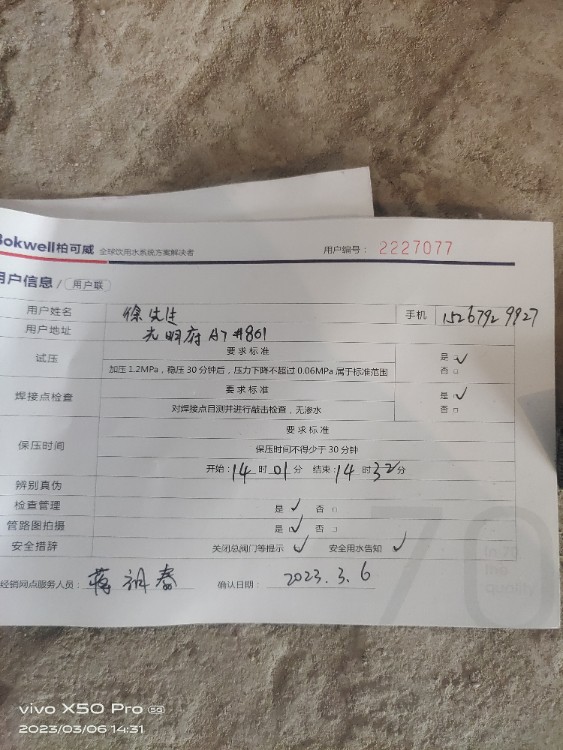 Bokwell柏可威 全球饮用水系统方案解决者 用户编号： 2227077
用户信息 / 用户联
用户姓名 徐先生 手机 15267929927
用户地址 光明府 A7#801
试压 要求标准 是 ✓
加压1.2MPa，稳压30分钟后，压力下降不超过0.06MPa属于标准范围 否 □
焊接点检查 要求标准 是 ✓
对焊接点目测并进行敲击检查，无渗水 否 □
保压时间 要求标准
保压时间不得少于30分钟
开始：14时01分 结束：14时32分
辨别真伪
检查管理 是 ✓ 否 □
管路图拍摄 是 ✓ 否 □
安全措辞 关闭总阀门等提示 ✓ 安全用水告知 ✓
经销网点服务人员： 确认日期： 2023.3.6
70
quality
vivo X50 Pro 5G
2023/03/06 14:31